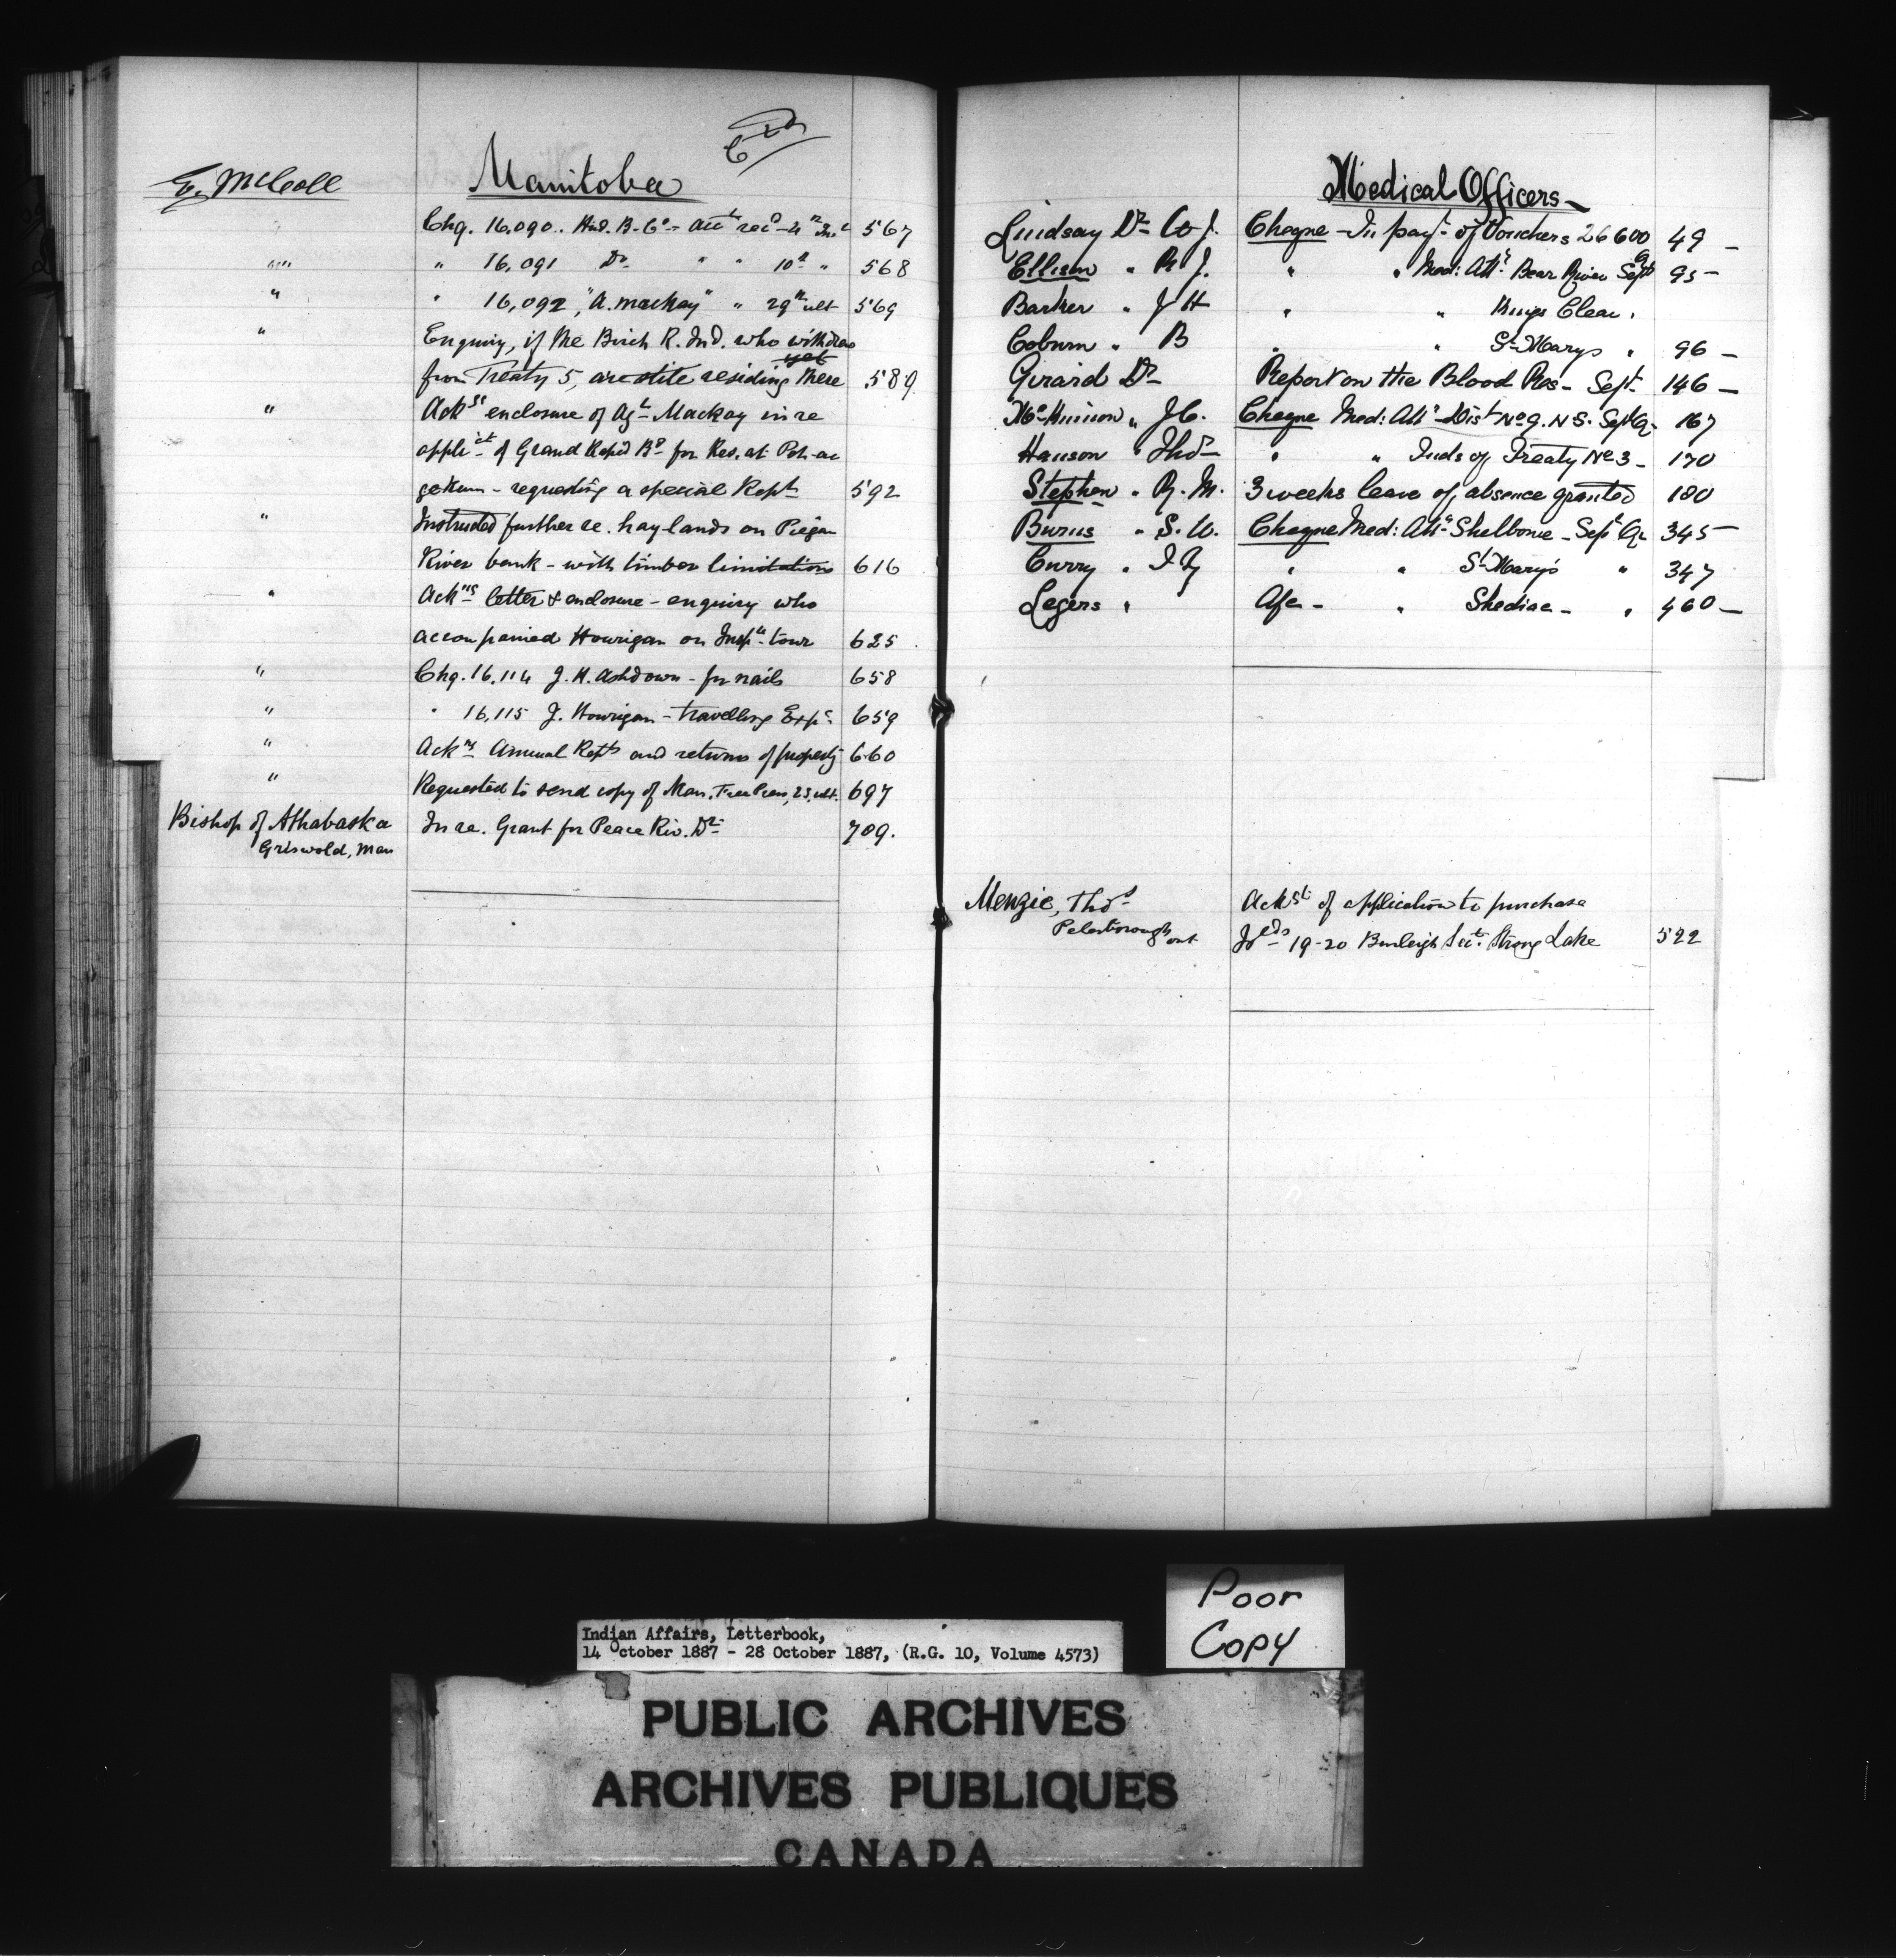 Manitoba
E. McColl
Chq. 16.090. Hud. B. Co - acct rec'd 4th Inst 567
" " 16,091 Do " " 10th " 568
" " 16,092 "A. Mackay" " 29th ult 569
" Enquiry, if the Birch R. Ind. who withdrew
yet
from Treaty 5, are still residing there 589
" Ack'g enclosure of Agt Mackay in re
of Grand Rapid Bd for Res. at
gekum - requesting a special Rept 592
" Instructed further re. hay lands on Pigeon
River bank - with timber limitations 616
" Ack'ng letter & enclosure - enquiry who
accompanied Hourigan on Insp'n tour 625
" Chq. 16,114 J. H. Ashdown - for nails 658
" " 16,115 J. Hourigan - travelling Exps 659
" Ack'ng Annual Repts and returns of property 660
" Requested to send copy of Man. Free Press, 23, ult. 697
Bishop of Athabaska In re. Grant for Peace Riv. Dt 709.
Griswold, Man
Medical Officers
Lindsay Dr W. J. Cheque - In pay't of Vouchers 26600 49 -
Ellison " R J. " " Med: Att'e Bear River Sept Q 95 -
Barker " J H " " Kings Clear.
Coburn " B " " St Marys " 96 -
Girard Dr Report on the Blood Res - Sept 146 -
" J C. Cheque Med: Att'e Dist No 9. N S. Sept Q 167
Hanson " Thos " " Inds of Treaty No 3 - 170
Stephen " R. M. 3 weeks leave of absence granted 180
Burns " S. W. Cheque Med: Att'e Shelborne - Sept Qr 345 -
Curry " " " St Mary's " 347
Legers " " Shediac - " 460 -
Menzie, Thos Ack'gt of application to purchase
Peterborough ont Ilds 19-20 Burleigh Sect. Stoney Lake 522
Poor
Copy
Indian Affairs, Letterbook,
14 October 1887 - 28 October 1887, (R.G. 10, Volume 4573)
PUBLIC ARCHIVES
ARCHIVES PUBLIQUES
CANADA